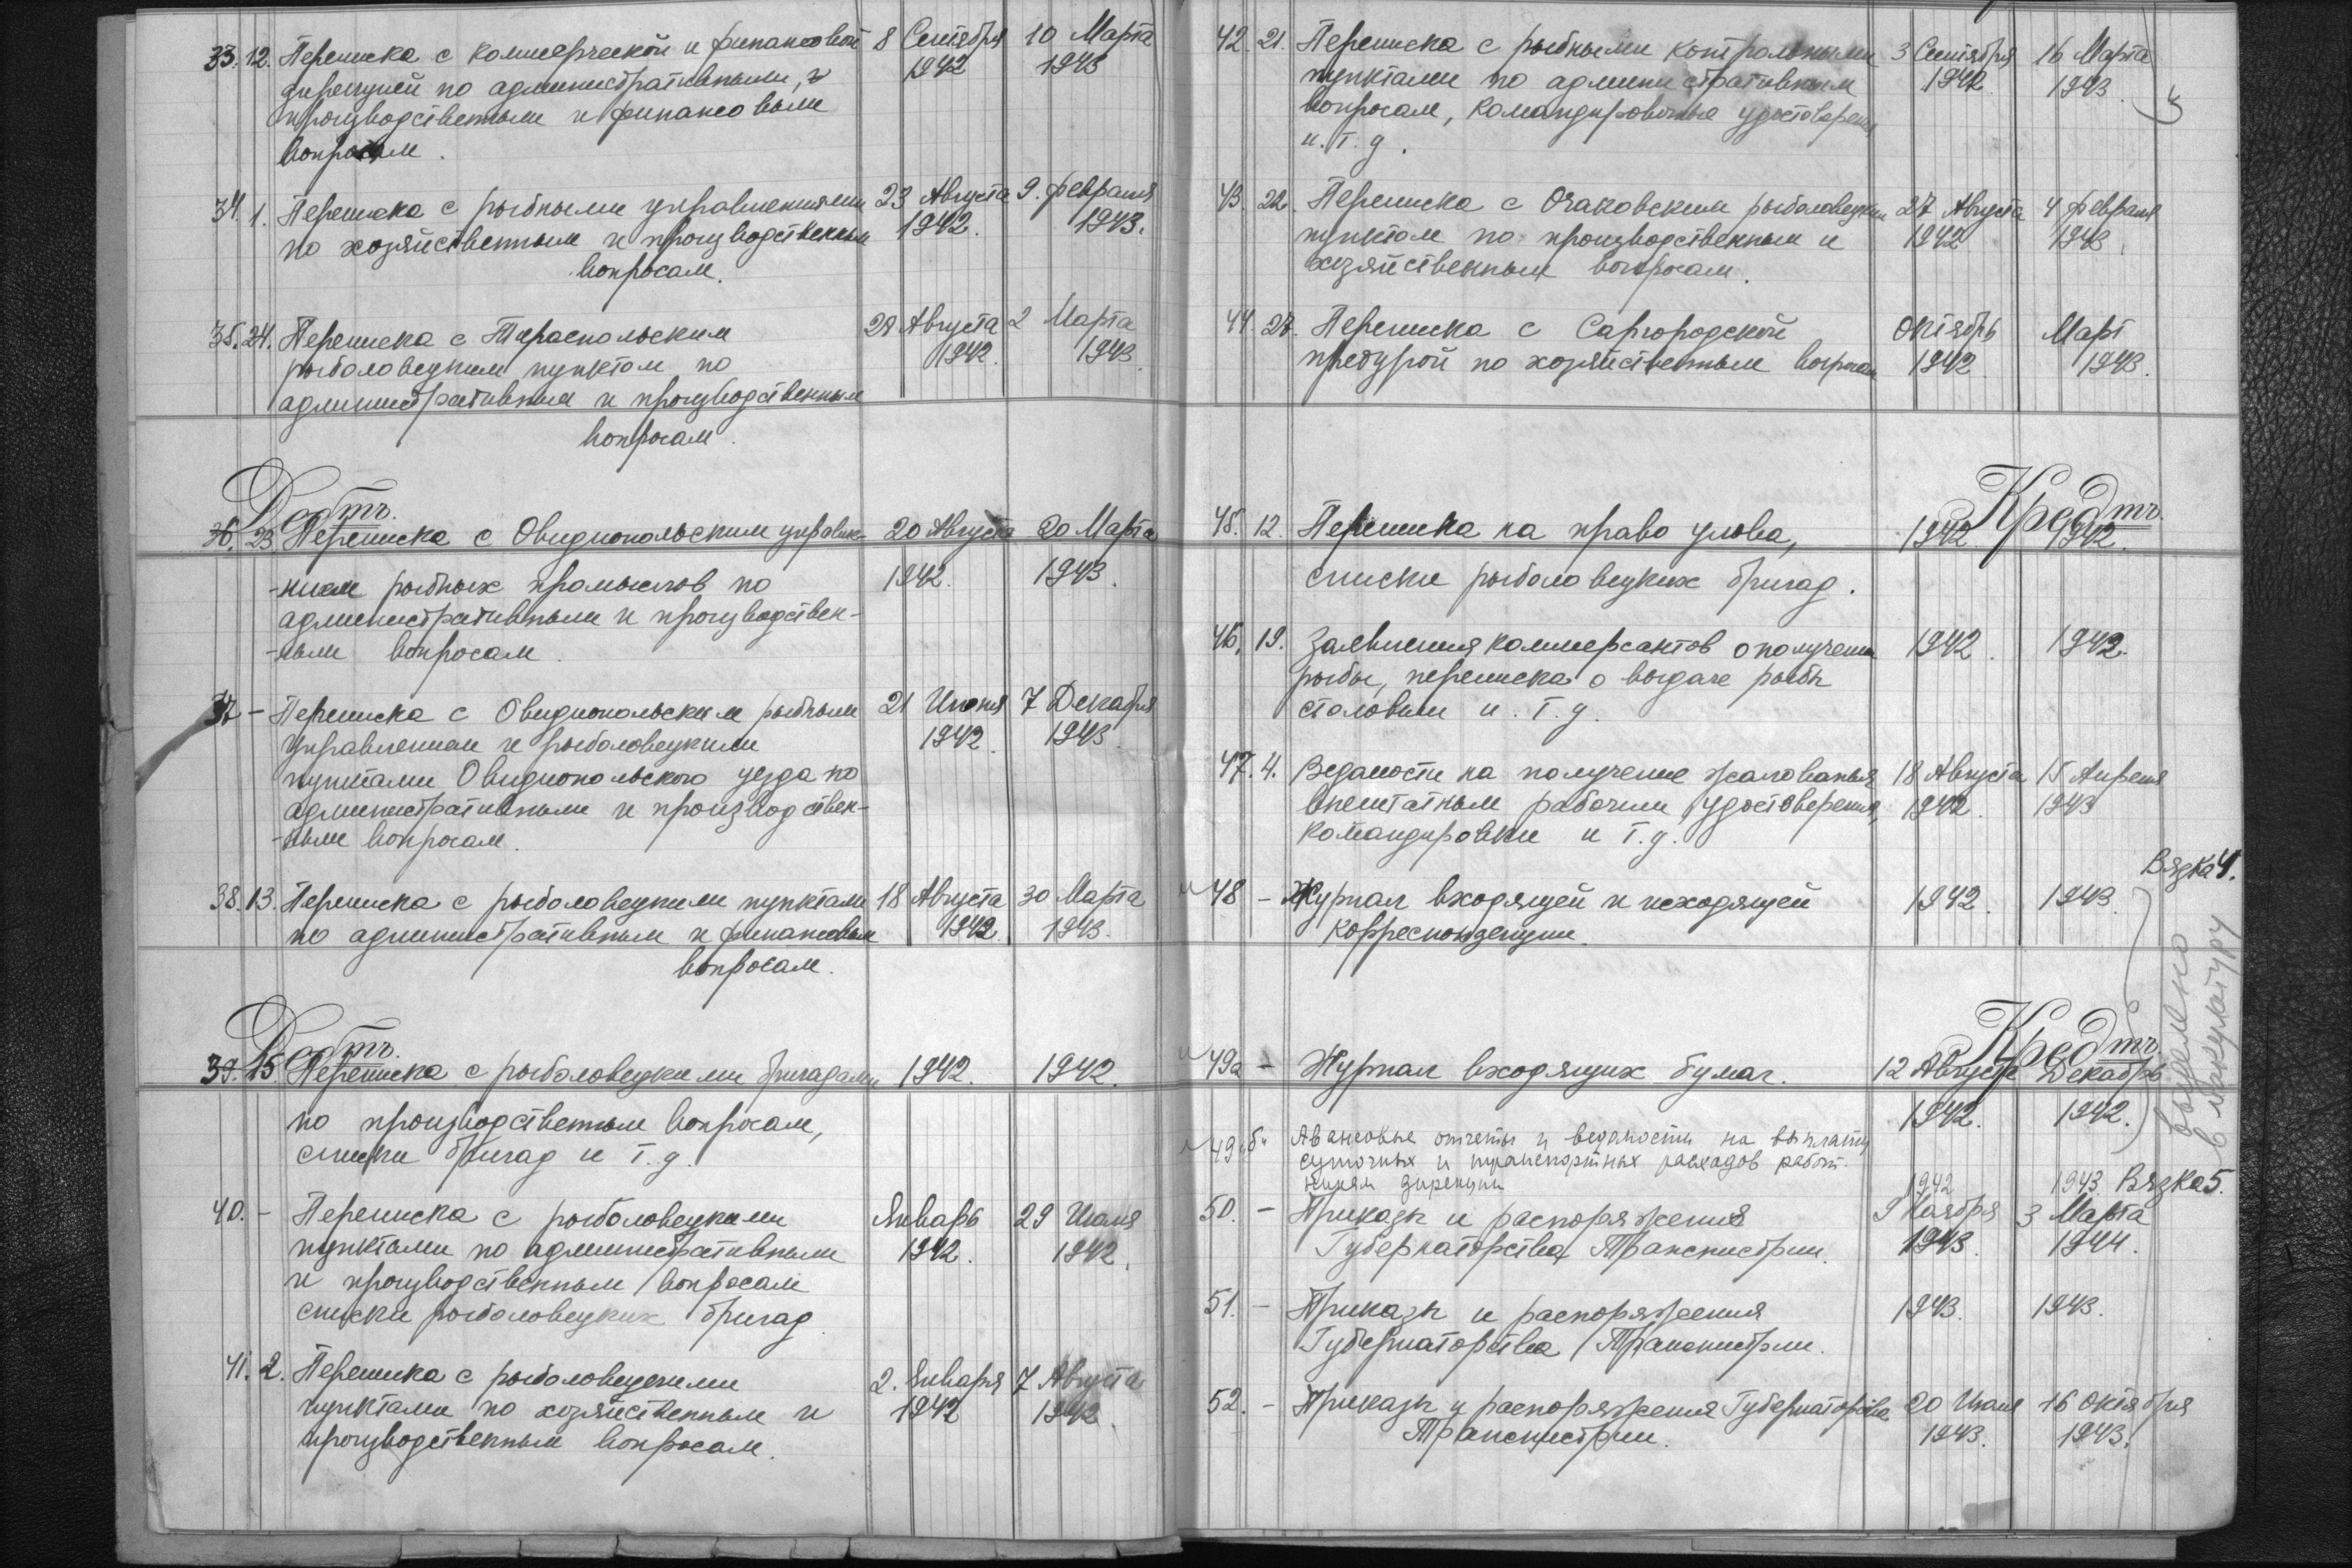 33. 12. Переписка с коммерческой и финансовой 8 Сентября 10 Марта
дирекцией по административным, и 1942 1943
производственным и финансовым
вопросам.
34. 1. Переписка с рыбными управлениями 23 Августа 9. февраля
по хозяйственным и производственным 1942. 1943.
вопросам.
35. 24. Переписка с Тираспольским 28 Августа 2 Марта
рыболовецким пунктом по 1942. 1943
административным и производственным
вопросам.
Дебтъ.
36. 23. Переписка с Овидиопольским управле- 20 Августа 20 Марта
-нием рыбных промыслов по 1942. 1943.
административным и производствен-
-ным вопросам.
37 - Переписка с Овидиопольским рыбным 21 Июня 7 Декабря
управлением и рыболовецкими 1942. 1943.
пунктами Овидиопольского уезда по
административным и производствен-
-ным вопросам.
38. 13. Переписка с рыболовецкими пунктами 18 Августа 30 Марта
по административным и финансовым 1942. 1943.
вопросам.
Дебтъ.
39. 15. Переписка с рыболовецкими бригадами 1942. 1942.
по производственным вопросам,
списки бригад и т.д.
40. - Переписка с рыболовецкими Январь 29 Июля
пунктами по административным 1942. 1942.
и производственным вопросам
списки рыболовецких бригад
41. 2. Переписка с рыболовецкими 2. Января 7 Августа
пунктами по хозяйственным и 1942 1942.
производственным вопросам.
42. 21. Переписка с рыбными контрольными 3 Сентября 16 Марта
пунктами по административным 1942 1943.
вопросам, командировочные удостоверения
и.т.д.
43. 22. Переписка с Очаковским рыболовецким 27 Августа 4 февраля
пунктом по производственным и 1942 1943.
хозяйственным вопросам.
44. 27. Переписка с Саргородской Октябрь Март
претурой по хозяйственным вопросам 1942. 1943.
Кредтъ.
45. 12. Переписка на право улова, 1942 1942.
списки рыболовецких бригад.
46. 19. Заявления коммерсантов о получении 1942. 1942.
рыбы, переписка о выдаче рыбы
столовым и.т.д.
47. 4. Ведомости на получение жалованья 18 Августа 15 Апреля
внештатным рабочим, удостоверения, 1942. 1943
командировки и т.д.
Вязка 4.
48 - Журнал входящей и исходящей 1942. 1943.
корреспонденции.
выделено
в макулатуру
Кредтъ.
49а - Журнал входящих бумаг. 12 Августа Декабрь
1942. 1942.
49 "б" Авансовые отчеты и ведомости на выплату
суточных и транспортных расходов работ-
никам дирекции 1942 1943. Вязка 5.
50. - Приказы и распоряжения 9 Ноября 3 Марта
Губернаторства Транснистрии. 1943. 1944.
51. - Приказы и распоряжения 1943. 1943.
Губернаторства Транснистрии.
52. - Приказы и распоряжения Губернаторства 20 Июля 16 Октября
Транснистрии. 1943. 1943.